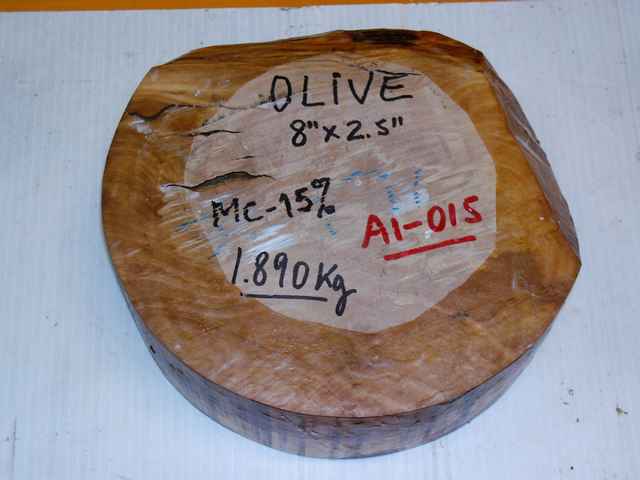 OLIVE
8" x 2.5"
MC-15%
A1-015
1.890Kg